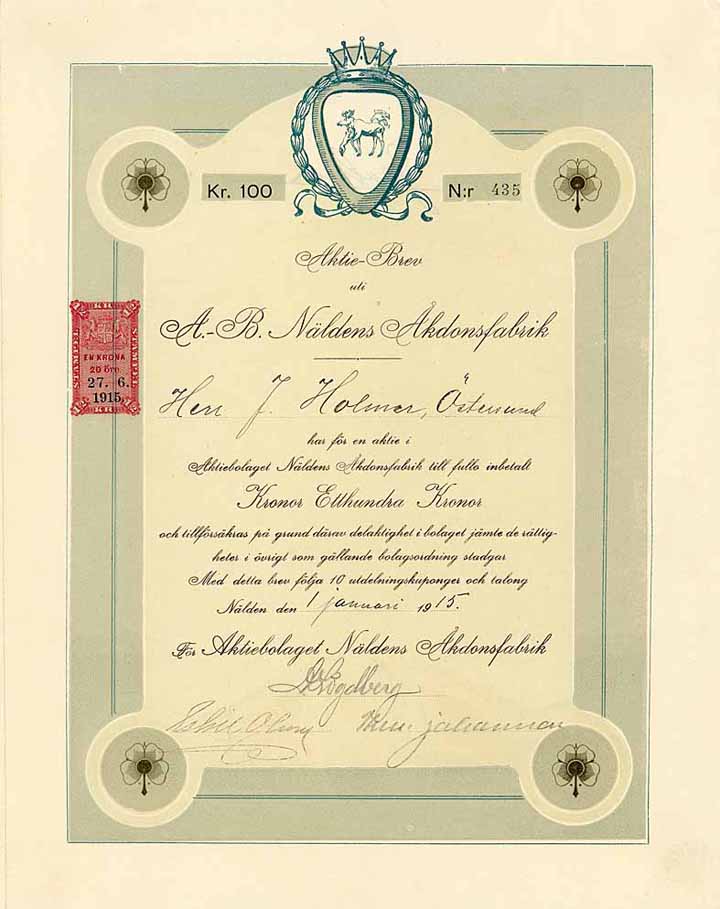 Kr. 100
N:r 435
Aktie-Brev
uti
A.-B. Näldens Åkdonsfabrik
STÄMPEL
EN KRONA
20 öre
27. 6.
1915.
Herr J. Holmer, Östersund
har för en aktie i
Aktiebolaget Näldens Åkdonsfabrik till fullo inbetalt
Kronor Etthundra Kronor
och tillförsäkras på grund därav delaktighet i bolaget jämte de rättig-
heter i övrigt som gällande bolagsordning stadgar
Med detta brev följa 10 utdelningskuponger och talong
Nälden den 1 januari 1915.
För Aktiebolaget Näldens Åkdonsfabrik